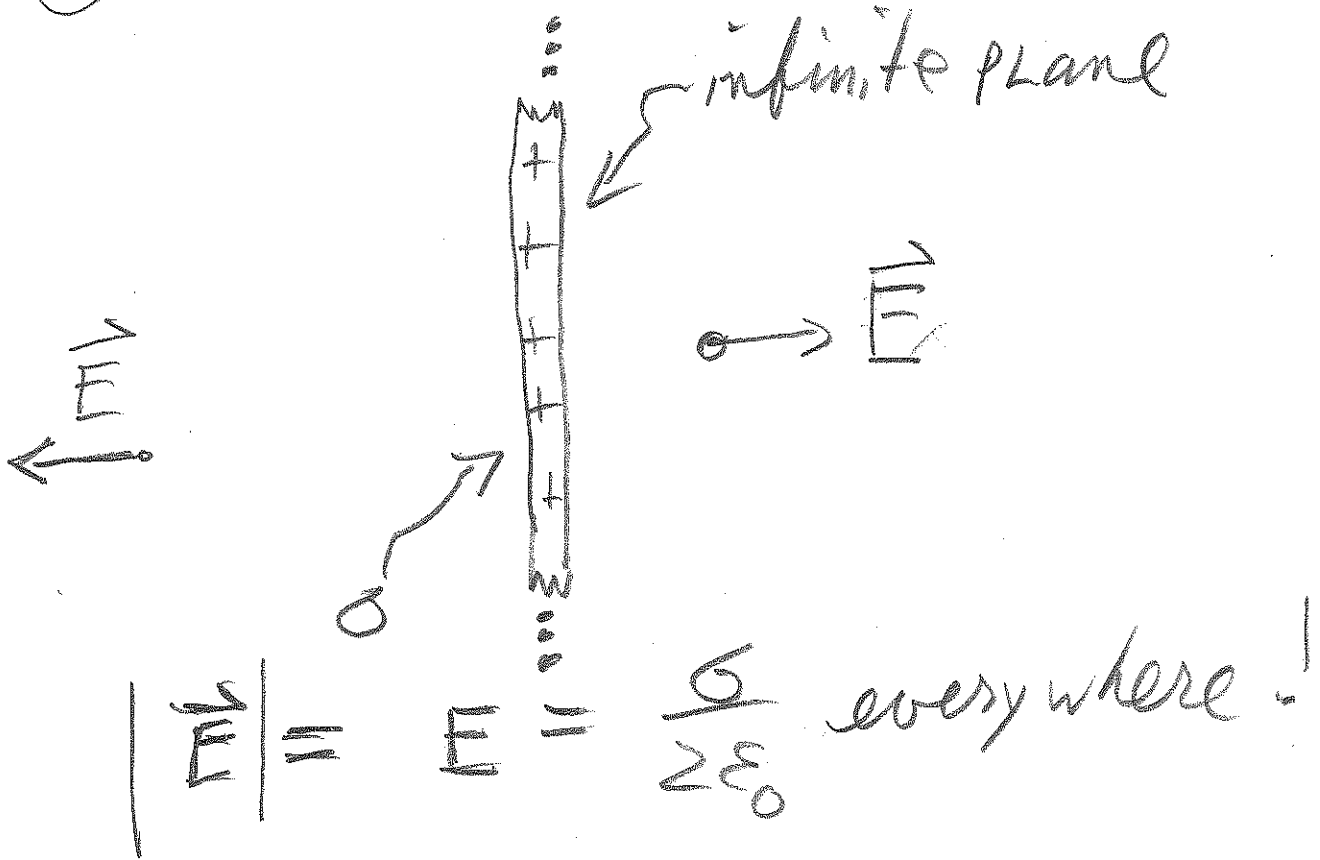 infinite plane
+
+
E⃗
+
E⃗
+
+
σ
|E⃗| = E = σ/2ε₀ everywhere!